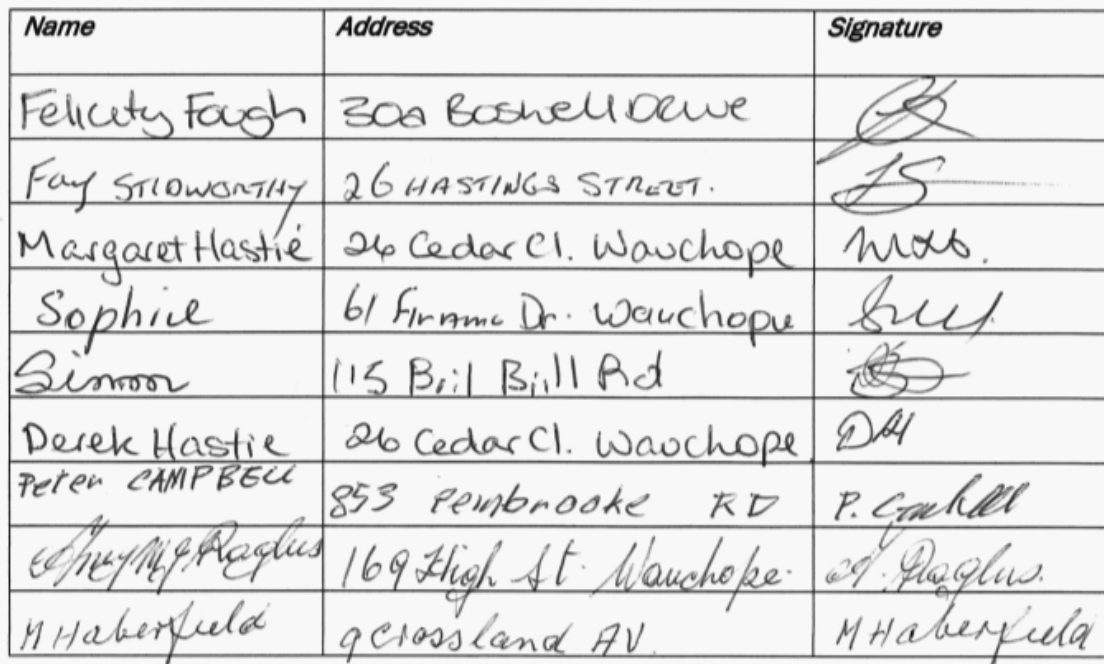 Name Address Signature
Felicity Fough 30a Boswell Drive
Fay STIDWORTHY 26 HASTINGS STREET.
Margaret Hastie 26 Cedar Cl. Wauchope
Sophie 61 Dr. Wauchope
Simon 115 Bril Bill Rd
Derek Hastie 26 Cedar Cl. Wauchope DH
Peter CAMPBELL 853 Pembrooke RD P. Campbell
Raglus 169 High St. Wauchope. Raglus.
M Haberfield 9 Crossland AV. M Haberfield